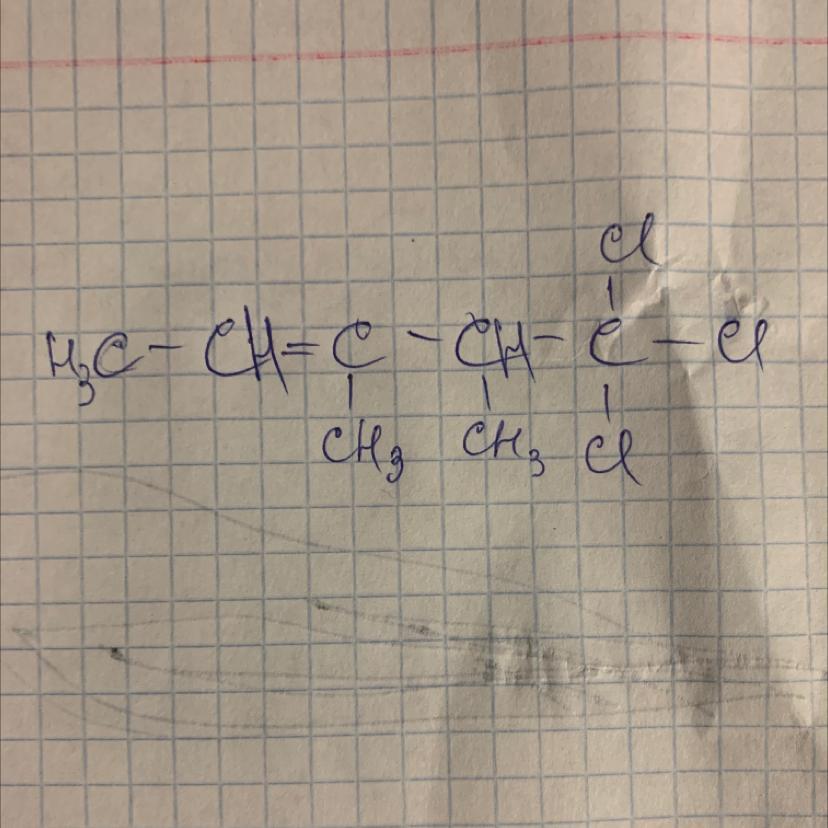 Cl
H₃C - CH = C - CH - C - Cl
CH₃ CH₃ Cl